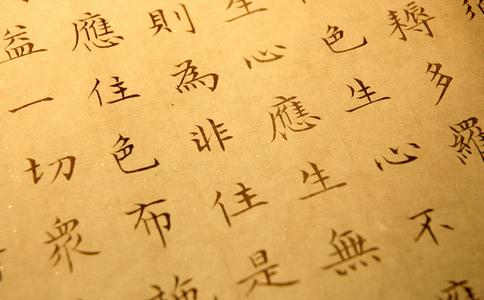 耨多羅
色生心不
生心應生無
則為非住是
應住色布施
益一切衆